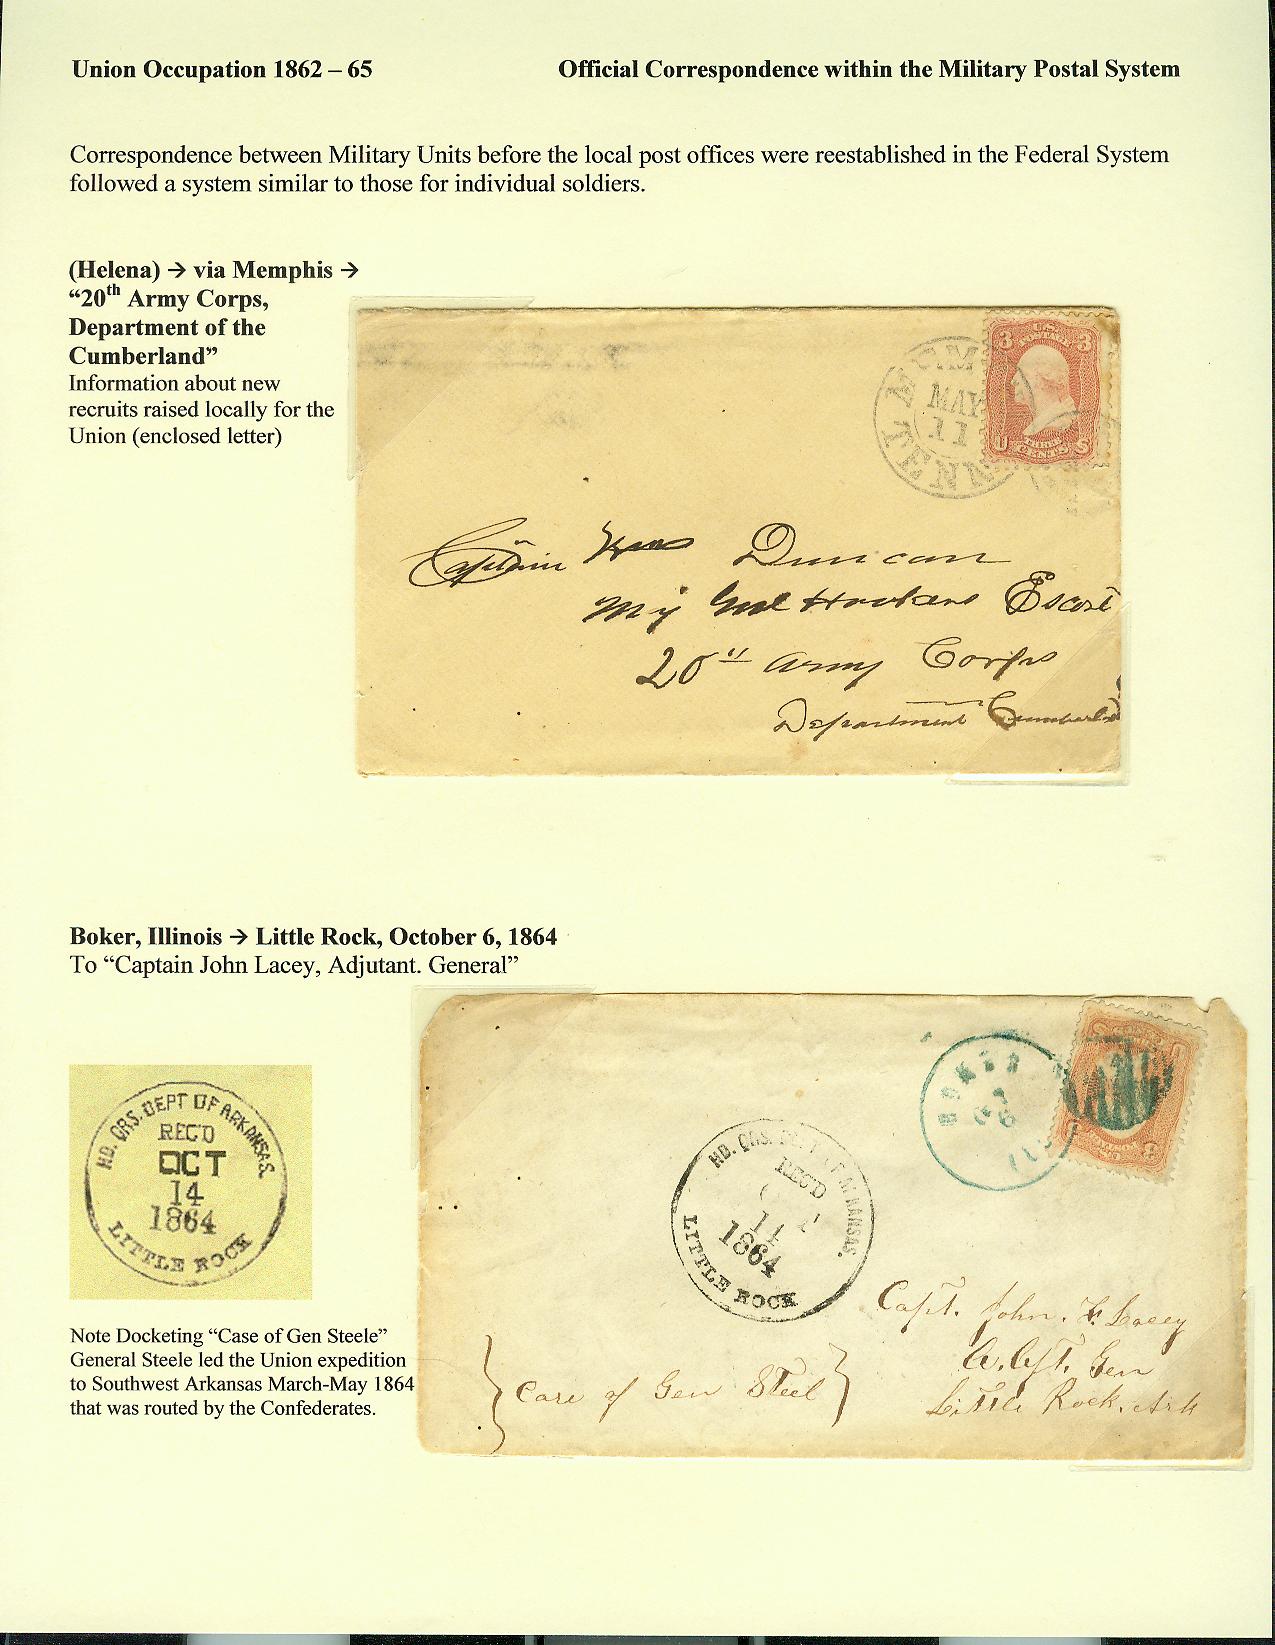 Union Occupation 1862 – 65
Official Correspondence within the Military Postal System
Correspondence between Military Units before the local post offices were reestablished in the Federal System
followed a system similar to those for individual soldiers.
(Helena) → via Memphis →
“20th Army Corps,
Department of the
Cumberland”
Information about new
recruits raised locally for the
Union (enclosed letter)
MEM
MAY
11
TENN
3 U.S. POSTAGE 3
U THREE CENTS S
Captain Wm Duncan
Mj Genl Hookers Escort
20" Army Corps
Department Cumberld
Boker, Illinois → Little Rock, October 6, 1864
To “Captain John Lacey, Adjutant. General”
HD. QRS. DEPT OF ARKANSAS.
REC'D
OCT
14
1864
LITTLE ROCK
BOKER
6
HD. QRS. DEPT OF ARKANSAS.
REC'D
14
1864
LITTLE ROCK
Capt. John. F. Lacey
A. Ajt. Gen
Little Rock, Ark
Care of Gen Steel
Note Docketing “Case of Gen Steele”
General Steele led the Union expedition
to Southwest Arkansas March-May 1864
that was routed by the Confederates.